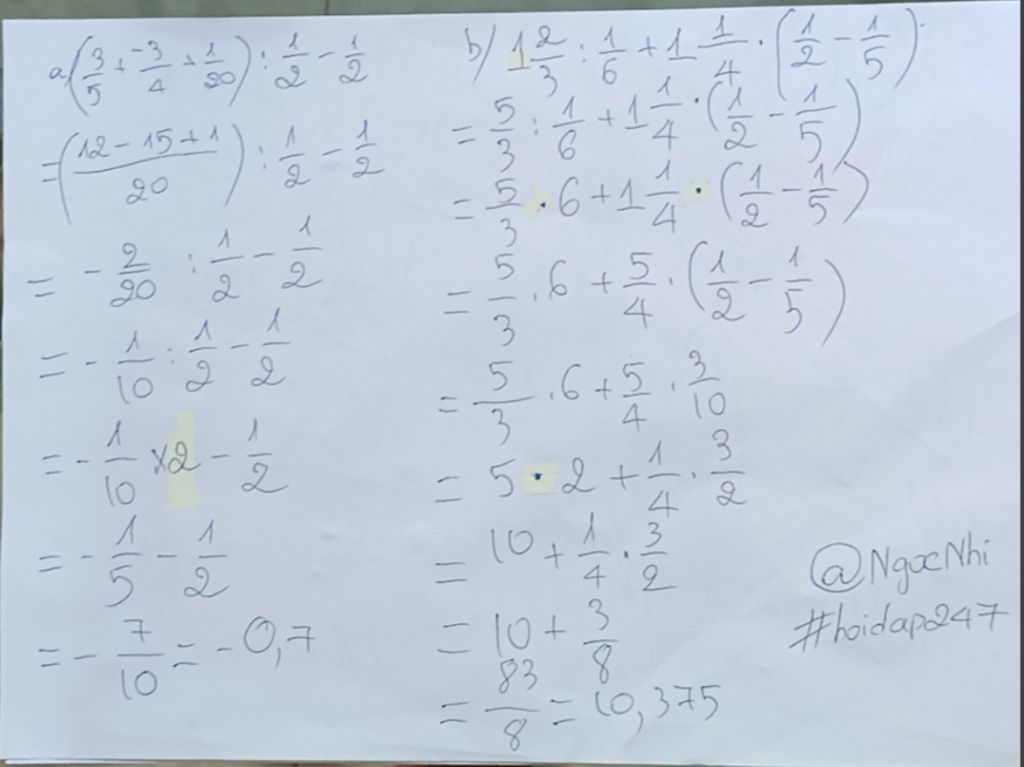 a, (3/5 + -3/4 + 1/20) : 1/2 - 1/2
= (12 - 15 + 1 / 20) : 1/2 - 1/2
= - 2/20 : 1/2 - 1/2
= - 1/10 : 1/2 - 1/2
= - 1/10 × 2 - 1/2
= - 1/5 - 1/2
= - 7/10 = - 0,7
b) 1 2/3 : 1/6 + 1 1/4 . (1/2 - 1/5).
= 5/3 : 1/6 + 1 1/4 . (1/2 - 1/5)
= 5/3 . 6 + 1 1/4 . (1/2 - 1/5)
= 5/3 . 6 + 5/4 . (1/2 - 1/5)
= 5/3 . 6 + 5/4 . 3/10
= 5 . 2 + 1/4 . 3/2
= 10 + 1/4 . 3/2
= 10 + 3/8
= 83/8 = 10,375
@NgocNhi
#hoidap247